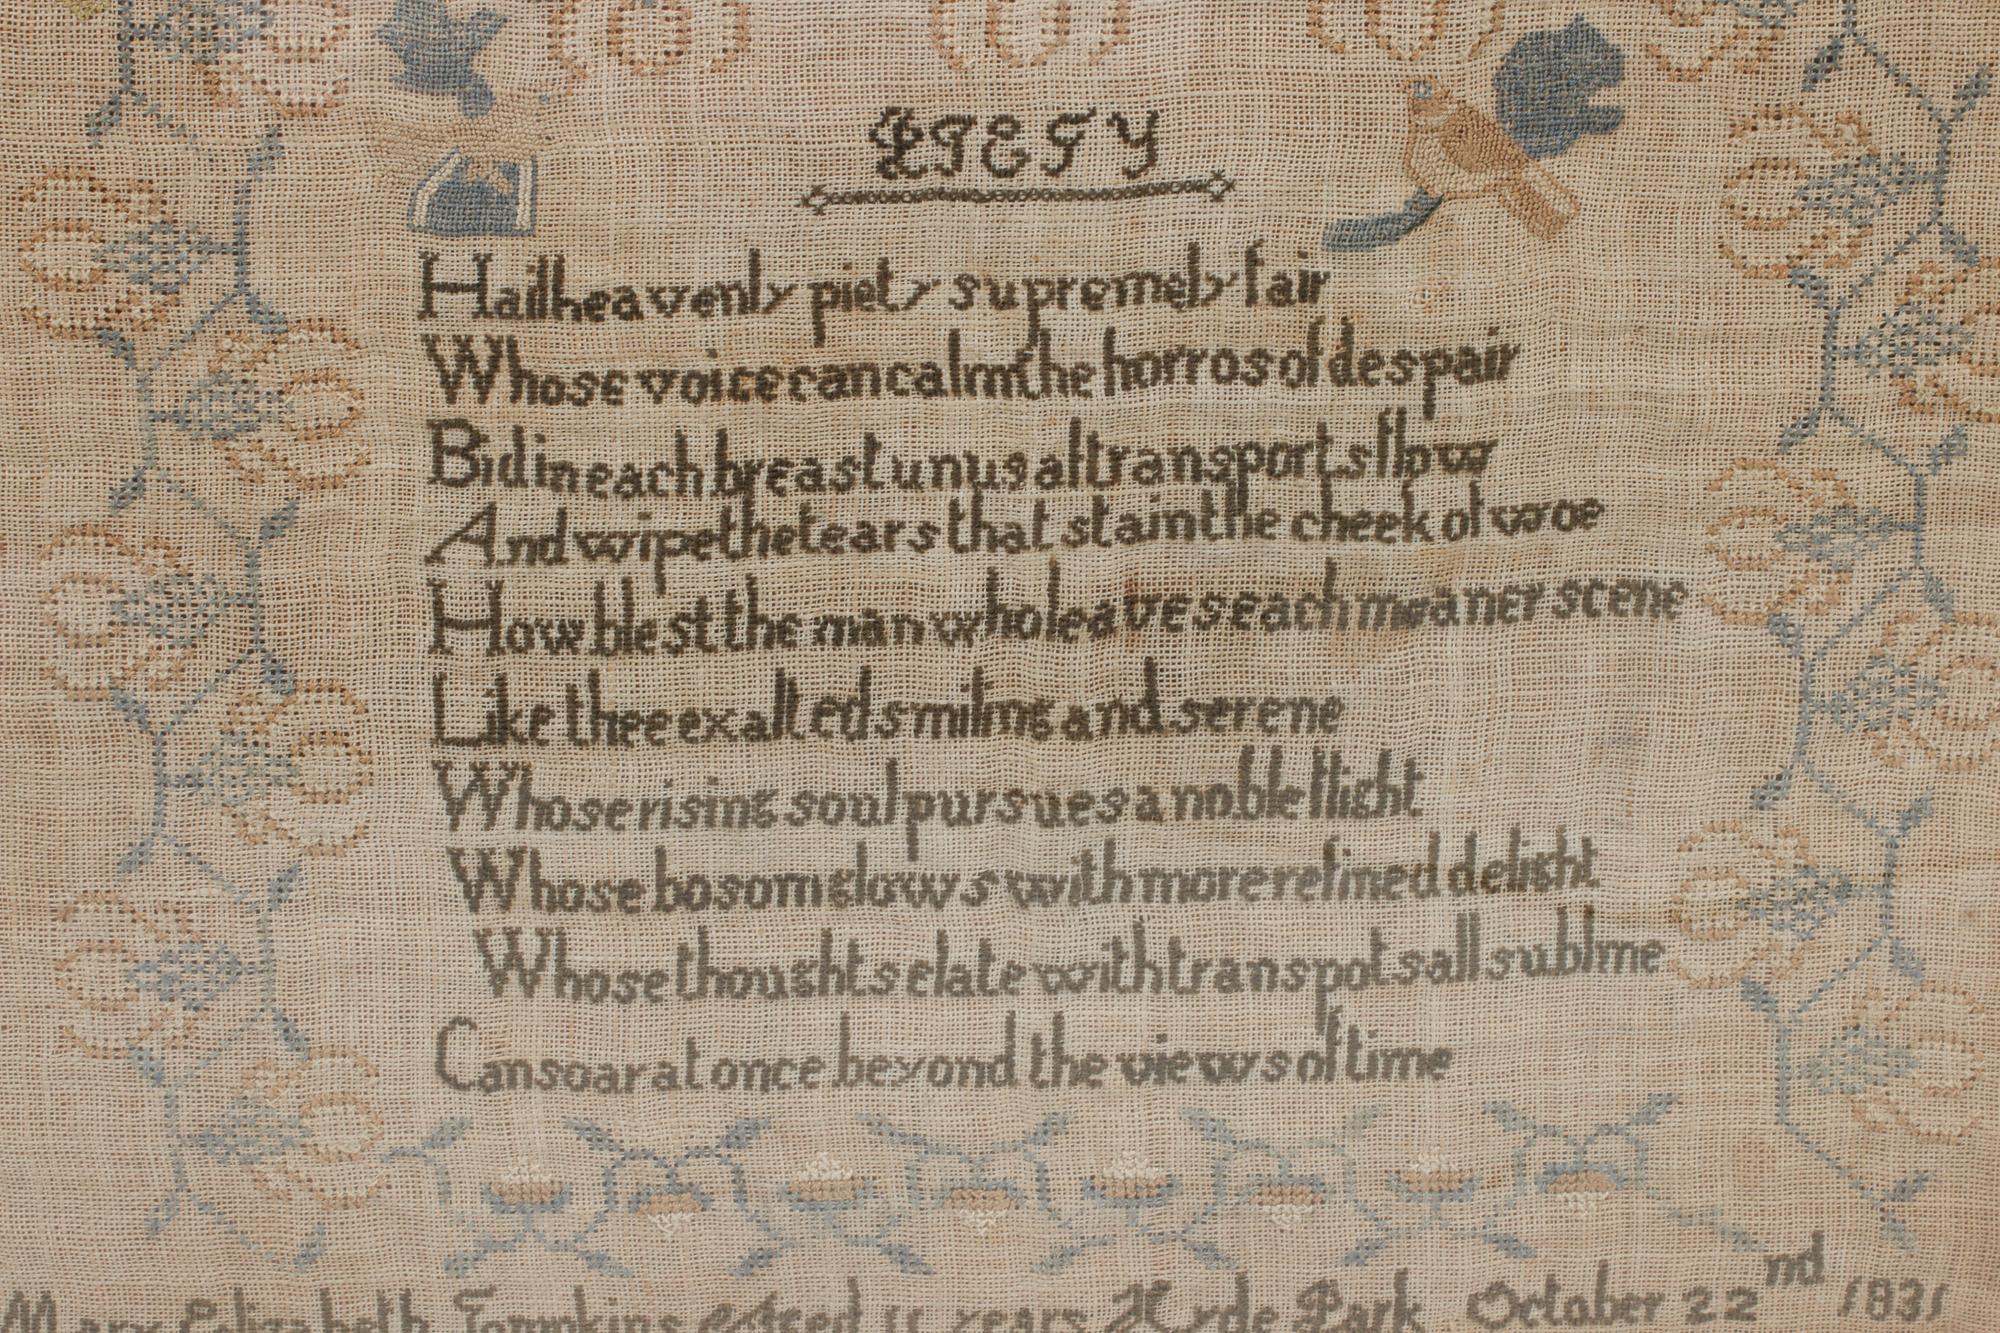 PIETY
Hail heavenly piety supremely fair
Whose voice can calm the horros of despair
Bid in each breast unusal transports flow
And wipe the tears that stain the cheek of woe
How blest the man who leaves each meaner scene
Like thee exalted smiling and serene
Whose rising soul pursues a noble flight
Whose bosom glows with more refined delight
Whose thoughts elate with transpots all sublime
Can soar at once beyond the views of time
Mary Elizabeth Tompkins aged 11 years Hyde Park October 22nd 1831